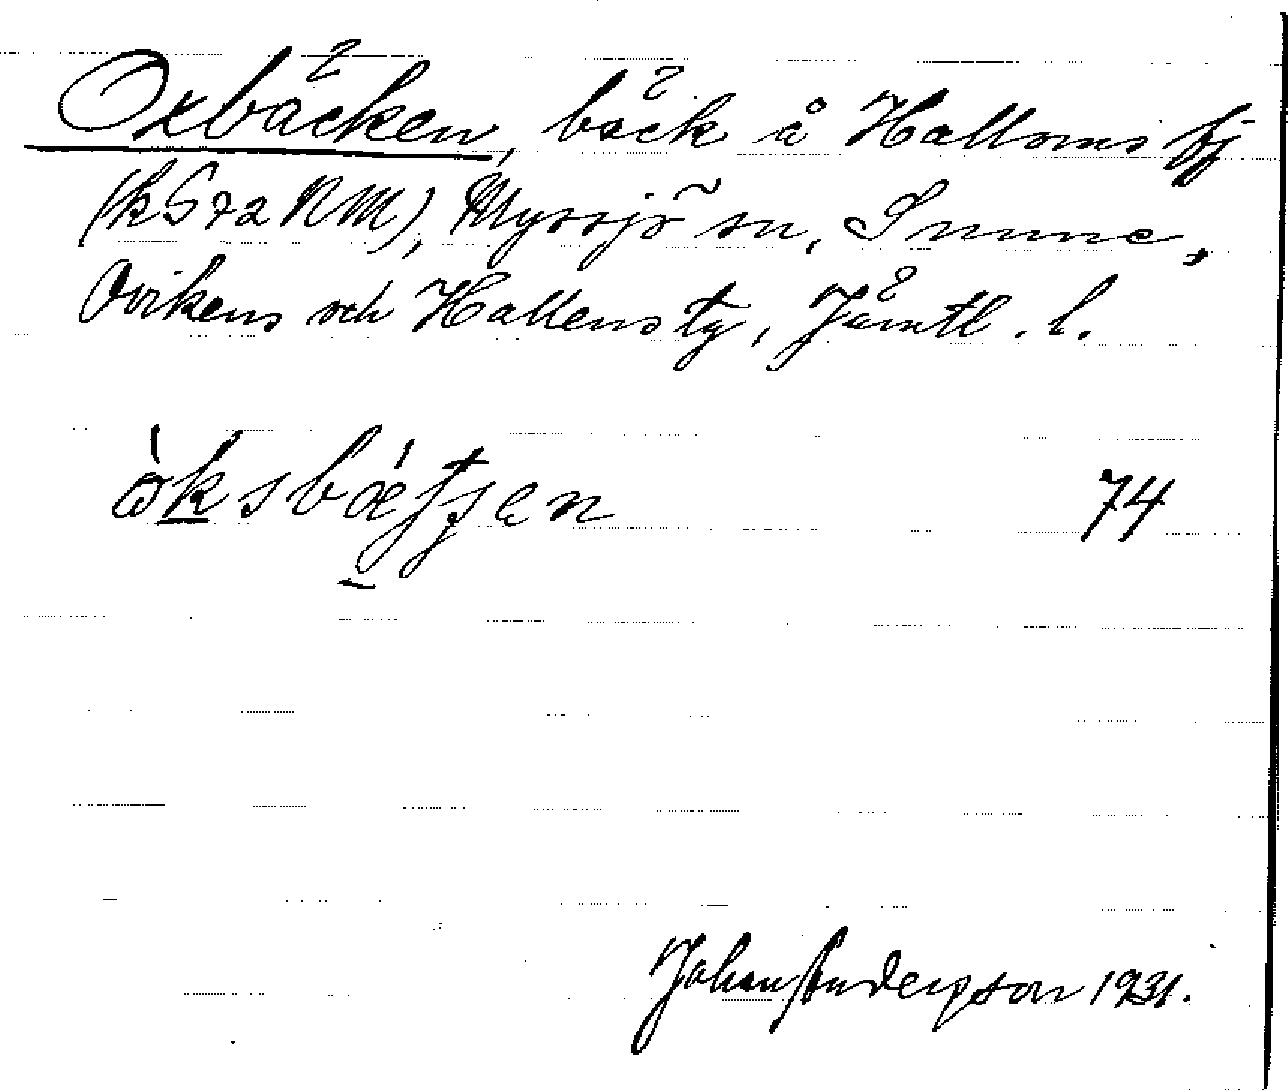 Oxbäcken, bäck å Halloms fj
(kS72NM), Myssjö sn, Sunne,
Ovikens och Hallens tg, Jämtl. l.
74
Johan Anderpson 1931.